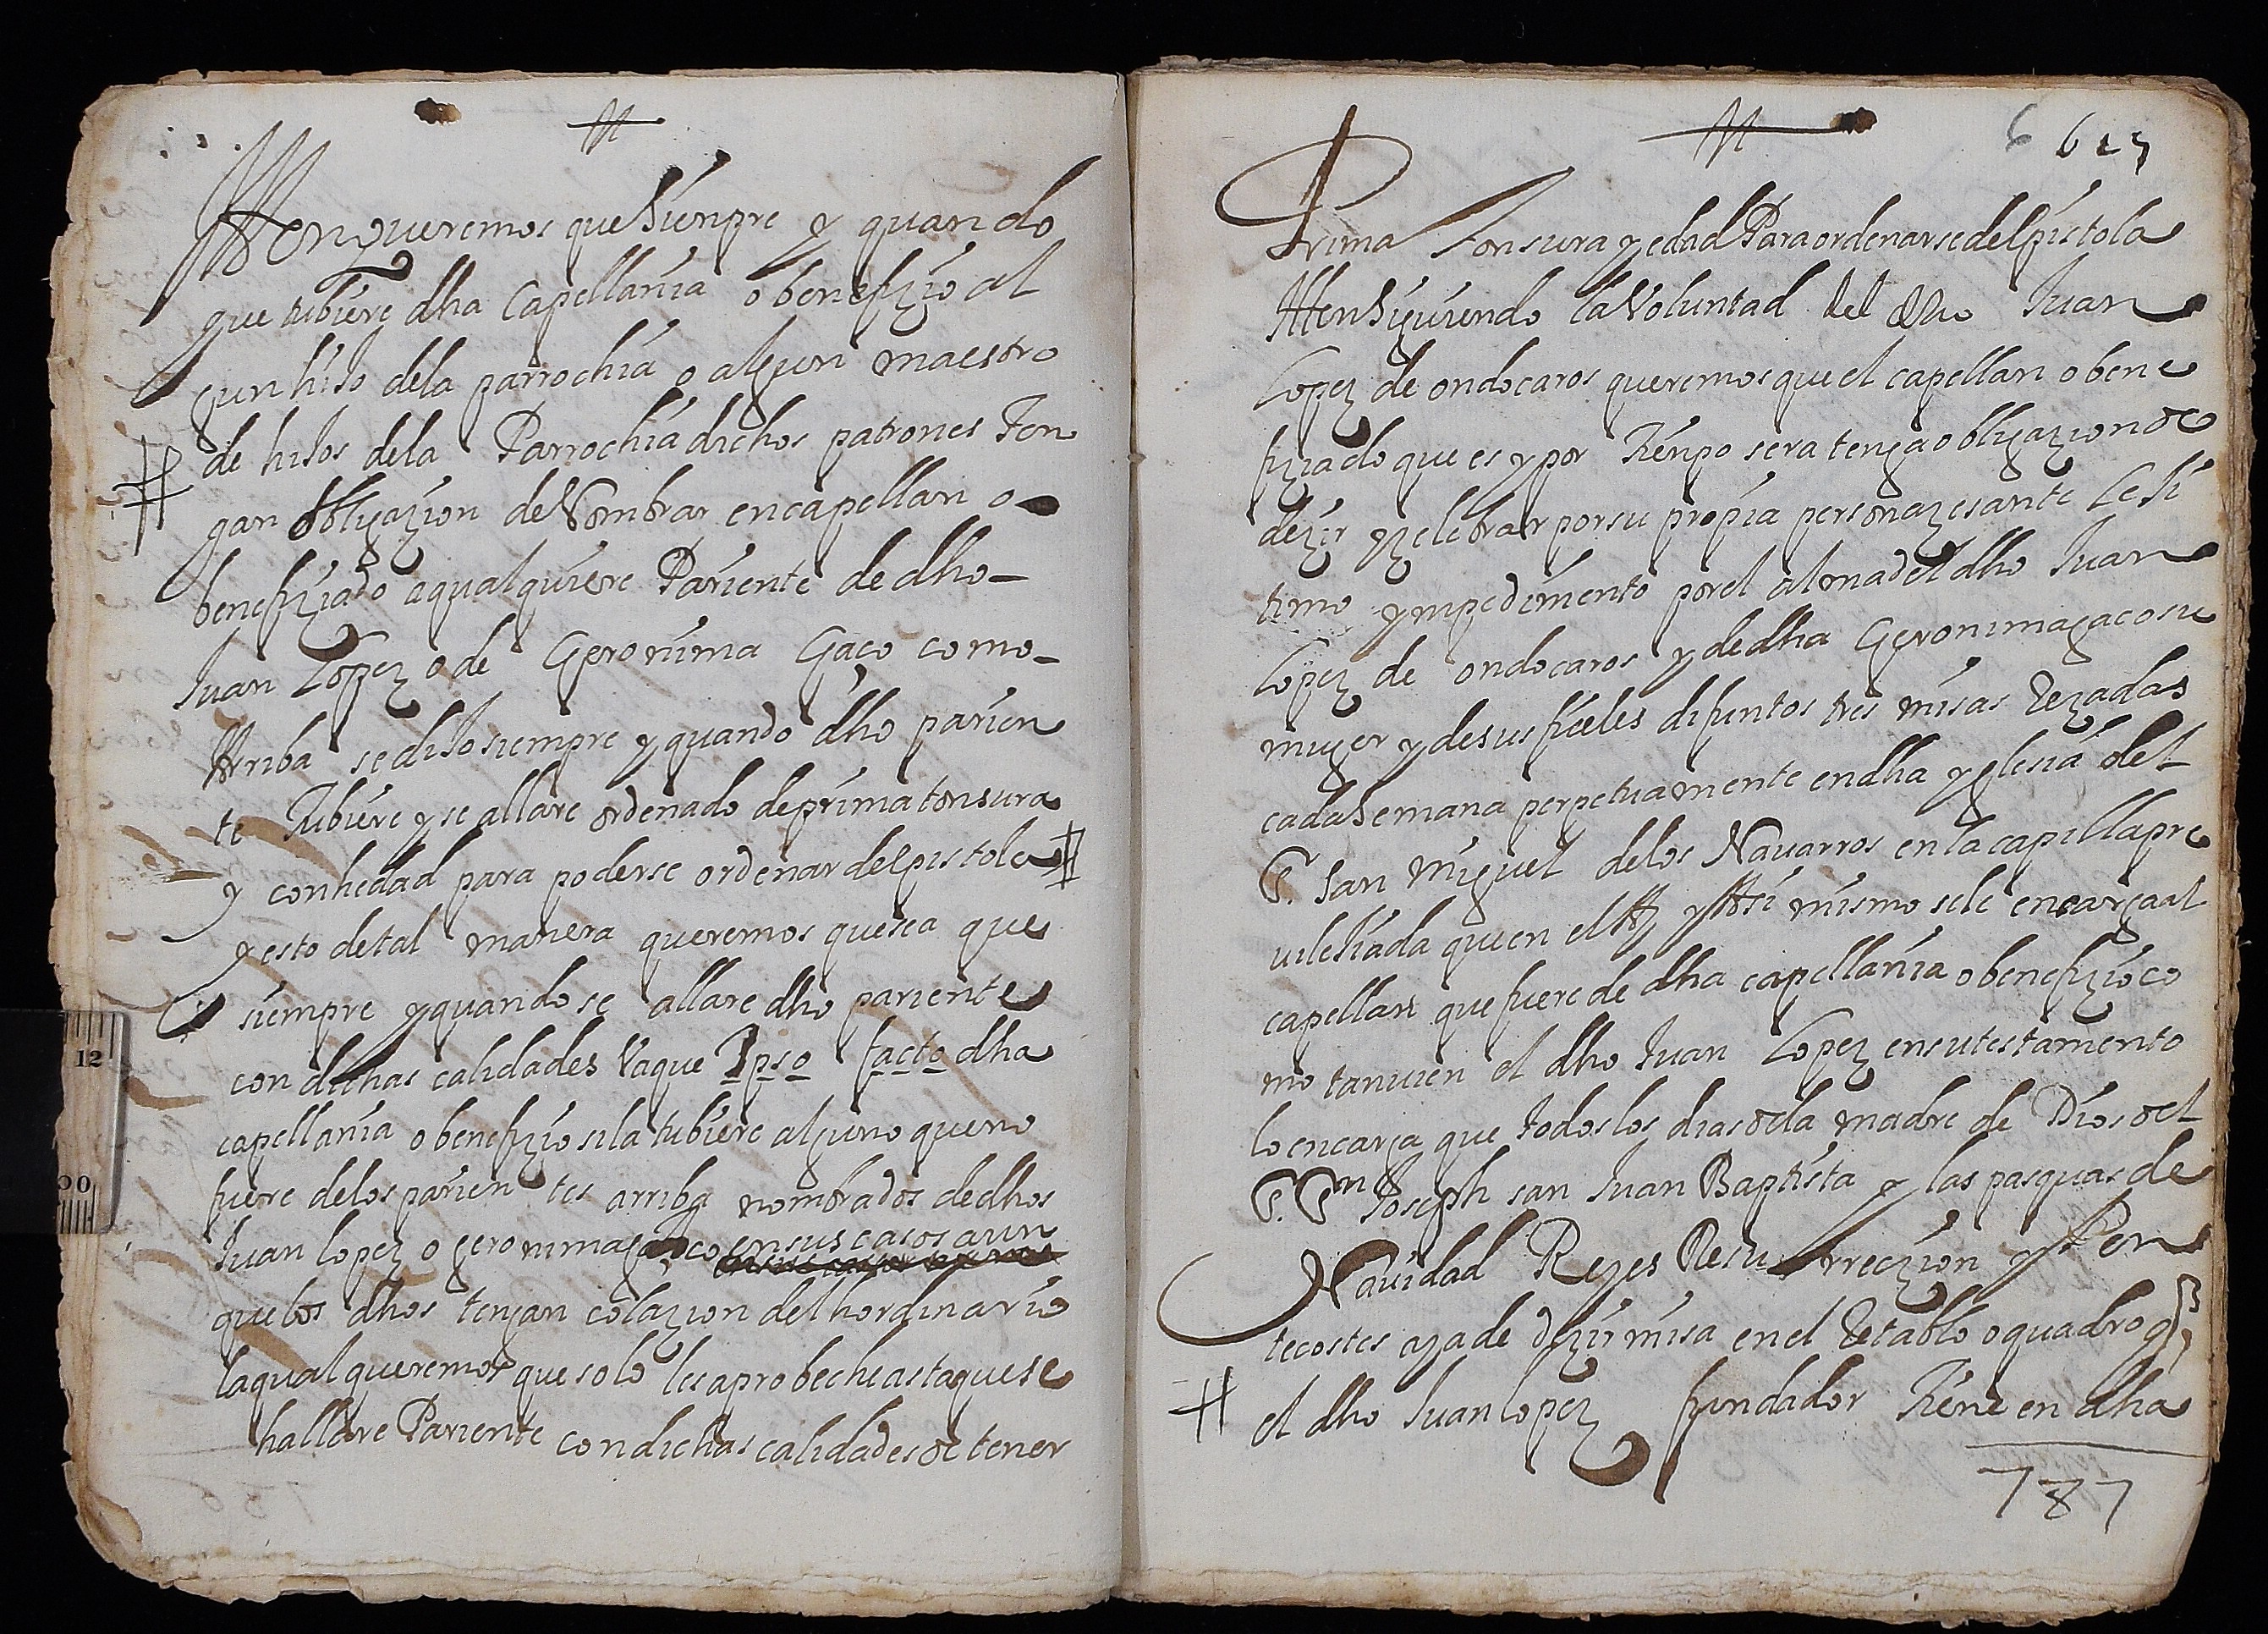 M
Itten queremos que Sienpre y quando
que tubiere dha Capellania o benefizio al
gun hijo dela parrochia o algun maestro
de hiJos dela Parrochia dichos patrones Ten
gan obligazion de Nombrar encapellan o
benefiziado a qualquiere Pariente de dho
Juan Lopez o de Geronima Gaço como
Arriba se diJo siempre y quando dho parien
te Tubiere y se allare ordenado de prima tonsura
y conhedad para poderse ordenar delpistola
y esto detal manera queremos quesea que
siempre y quando se allare dho pariente
con dichas calidades Vaque Ipso facto dha
capellania o benefizio sila tubiere alguno queno
fuere delos parien tes arriba nombrados dedhos
Juan lopez o geronimagaço ensuscasos aun
quelos dhos tengan colazion delhordinario
laqual queremos que solo lesaprobecheastaquese
hallare Pariente condichas calidades de tener
M
6 6
Prima Tonsura y edad Para ordenarse delpistola
Itten Siguiendo la Voluntad del dho Juan
Lopez de ondocaros queremos que el capellan o bene
fiziado que es y por Tienpo sera tenga obligazion de
dezir y zelebrar por su propia persona zesante leJi
timo ympedimento porel almadel dho Juan
Lopez de ondocaros y dedha Geronimagaco su
muger y desus fieles difuntos tres misas Rezadas
cadaSemana perpetuamente endha yglesia del
S. San Miguel delos Nauarros en la capillapre
uileJiada quen ella ay y Assi mismo sele encargaal
capellan que fuere de dha capellania o benefizio co
mo tanuien el dho Juan Lopez ensutestamento
lo encarga que todoslos dias dela madre de Dios del
S. Sn Joseph san Juan Baptista y las pasquas de
Nauidad Reyes Resurreczion y Pen
tecostes aya de dezir misa en el Retablo o quadro q
el dho Juan lopez fundador Tiene en dha
787